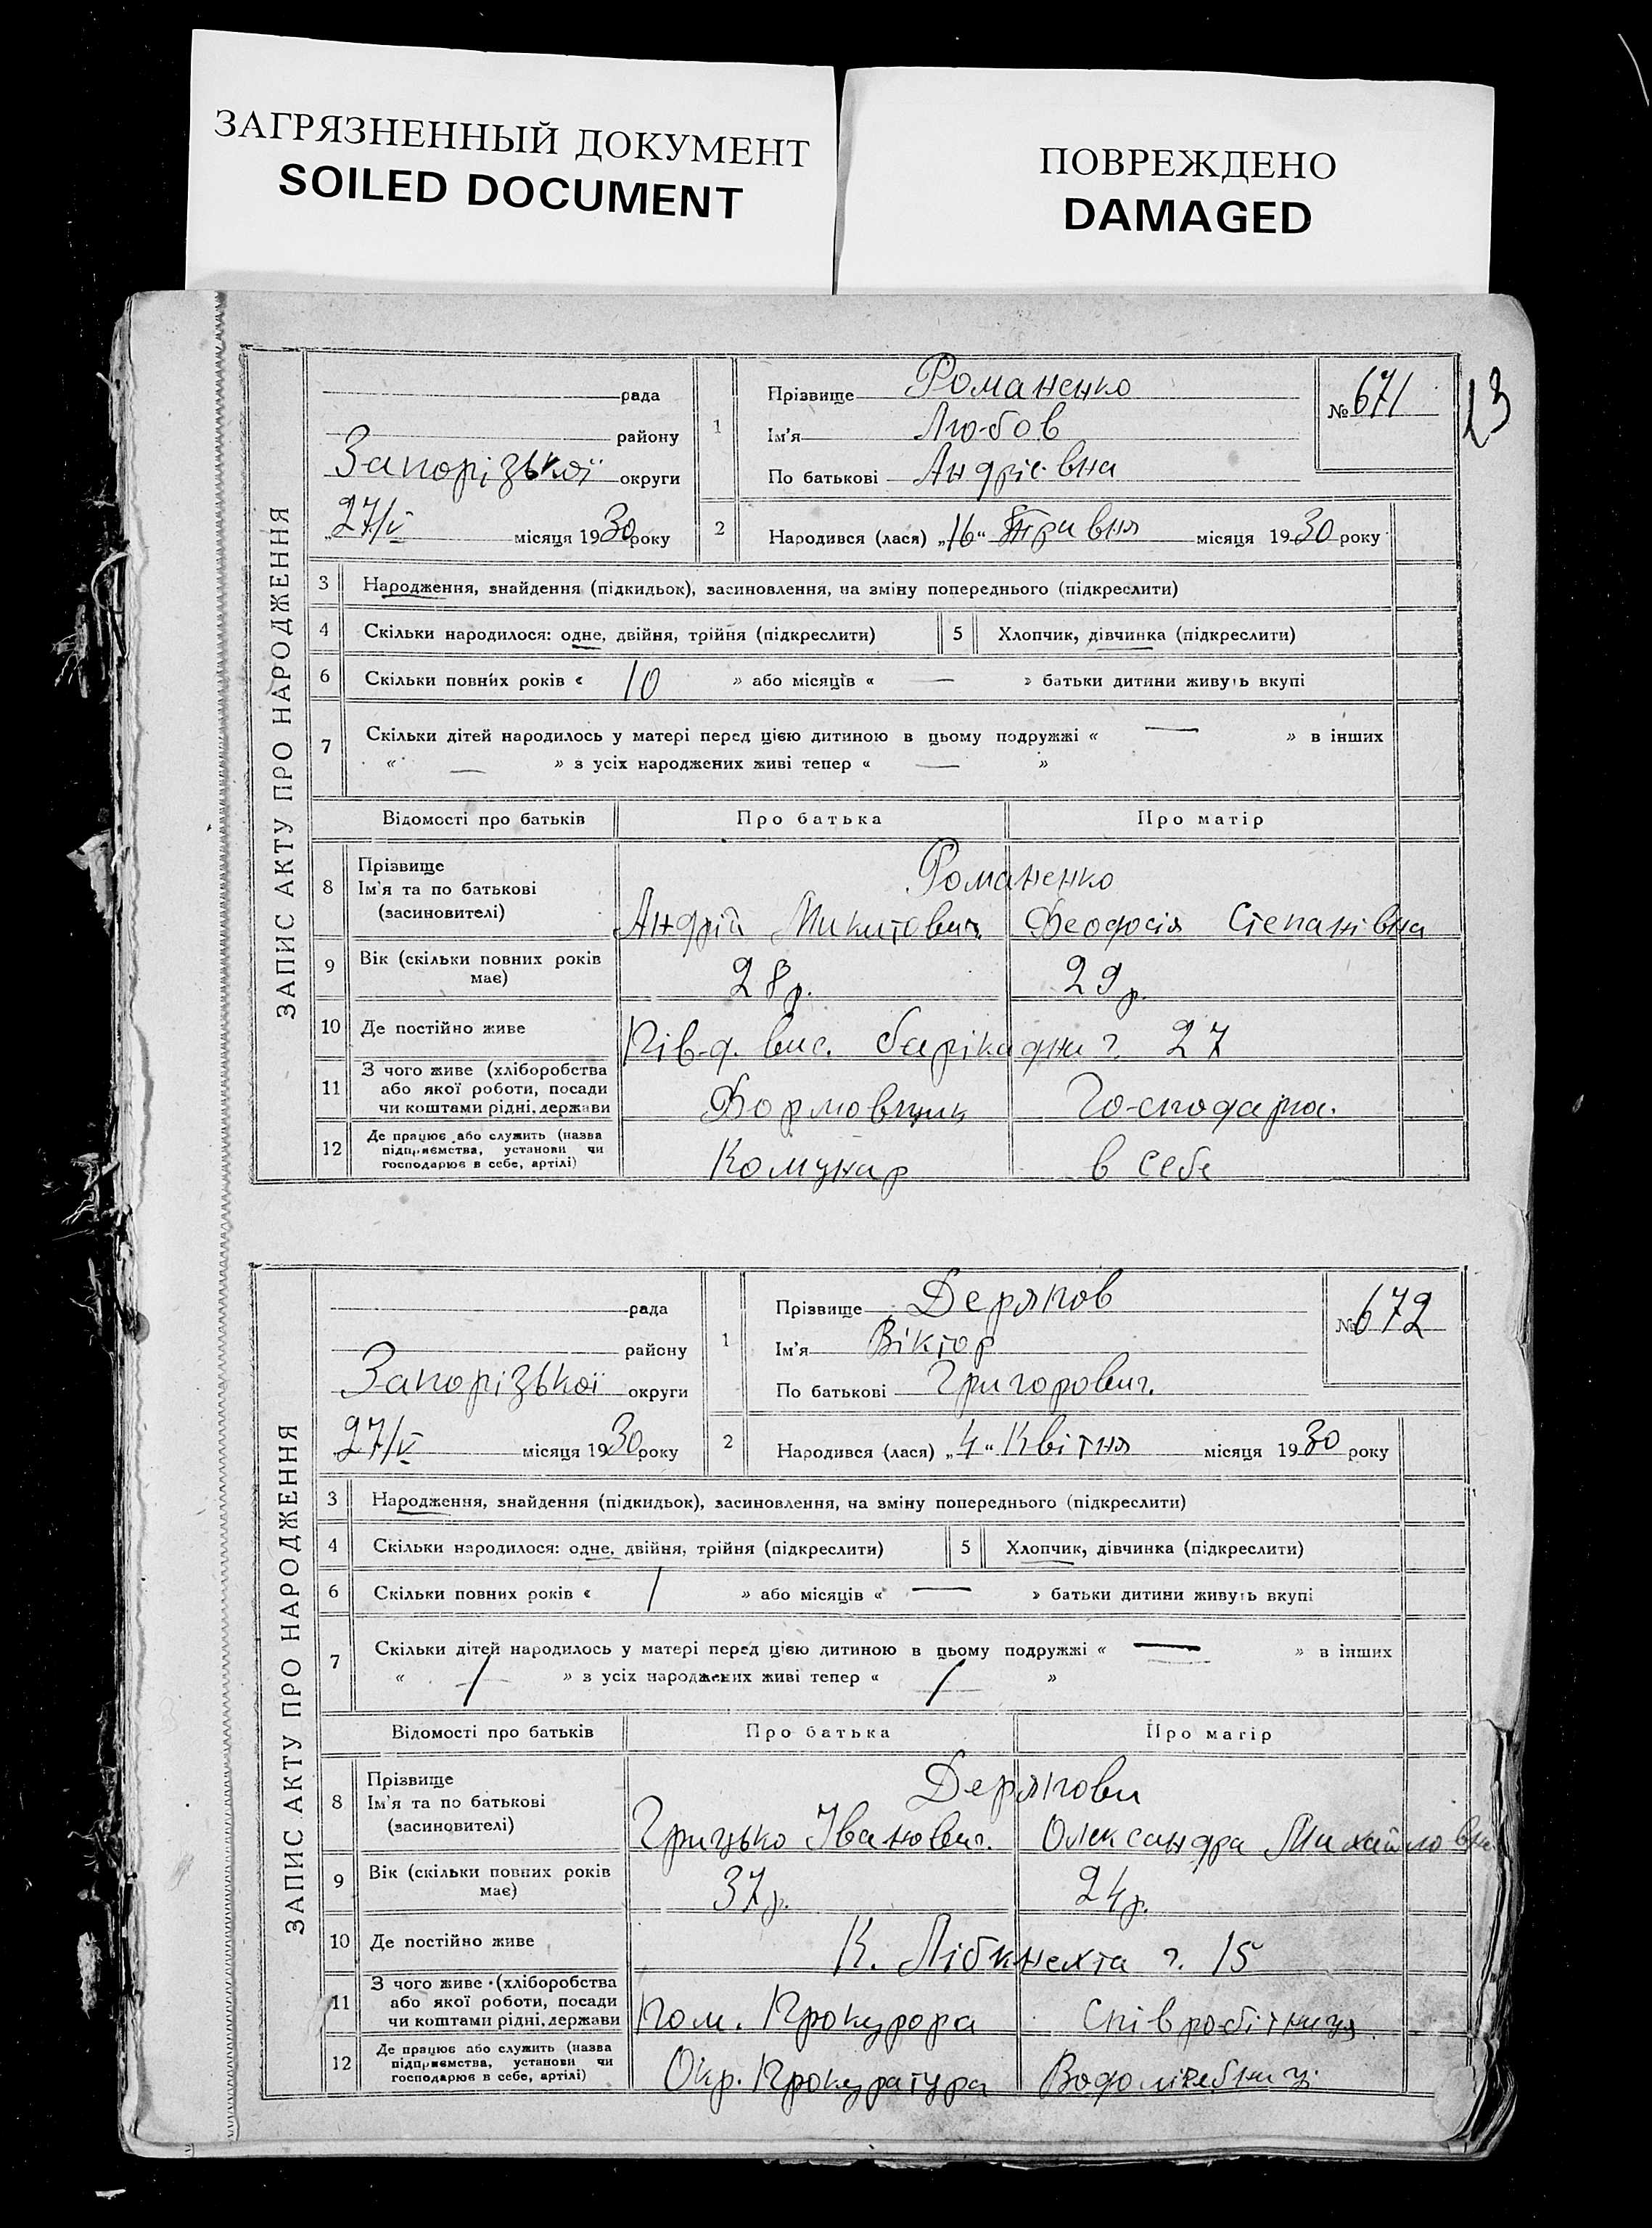 ЗАГРЯЗНЕННЫЙ ДОКУМЕНТ
SOILED DOCUMENT
ПОВРЕЖДЕНО
DAMAGED
23
ЗАПИС АКТУ ПРО НАРОДЖЕННЯ
рада
району
Запорізької округи
27/V місяця 1930 року
1 Прізвище Романенко
Ім'я Любов
По батькові Андріївна
№ 671
2 Народився (лася) „16“ Травня місяця 1930 року
3 Народження, знайдення (підкидьок), засиновлення, на зміну попереднього (підкреслити)
4 Скільки народилося: одне, двійня, трійня (підкреслити) 5 Хлопчик, дівчинка (підкреслити)
6 Скільки повних років « 10 » або місяців « — » батьки дитини живуть вкупі
7 Скільки дітей народилось у матері перед цією дитиною в цьому подружжі « — » в інших
« — » з усіх народжених живі тепер « — »
Відомості про батьків Про батька Про матір
8 Прізвище
Ім'я та по батькові
(засиновителі)
Романенко
Андрій Микитович Феодосія Степанівна
9 Вік (скільки повних років має) 28 р. 29 р.
10 Де постійно живе Півд. вис. барікадни ч. 27
11 З чого живе (хліборобства
або якої роботи, посади
чи коштами рідні, держави
Формовщик Господарка.
12 Де працює або служить (назва
підприємства, установи чи
господарює в себе, артілі)
Комунар в себе
ЗАПИС АКТУ ПРО НАРОДЖЕННЯ
рада
району
Запорізької округи
27/V місяця 1930 року
1 Прізвище Деряков
Ім'я Віктор
По батькові Григорович.
№ 672
2 Народився (лася) „4“ Квітня місяця 1930 року
3 Народження, знайдення (підкидьок), засиновлення, на зміну попереднього (підкреслити)
4 Скільки народилося: одне, двійня, трійня (підкреслити) 5 Хлопчик, дівчинка (підкреслити)
6 Скільки повних років « 1 » або місяців « — » батьки дитини живуть вкупі
7 Скільки дітей народилось у матері перед цією дитиною в цьому подружжі « — » в інших
« 1 » з усіх народжених живі тепер « 1 »
Відомості про батьків Про батька Про матір
8 Прізвище
Ім'я та по батькові
(засиновителі)
Дерякови
Грицько Іванович. Олександра Михайловна
9 Вік (скільки повних років має) 37 р. 24 р.
10 Де постійно живе К. Лібкнехта ч. 15
11 З чого живе (хліборобства
або якої роботи, посади
чи коштами рідні, держави
Пом. Прокурора Співробітниця.
12 Де працює або служить (назва
підприємства, установи чи
господарює в себе, артілі)
Окр. Прокуратура